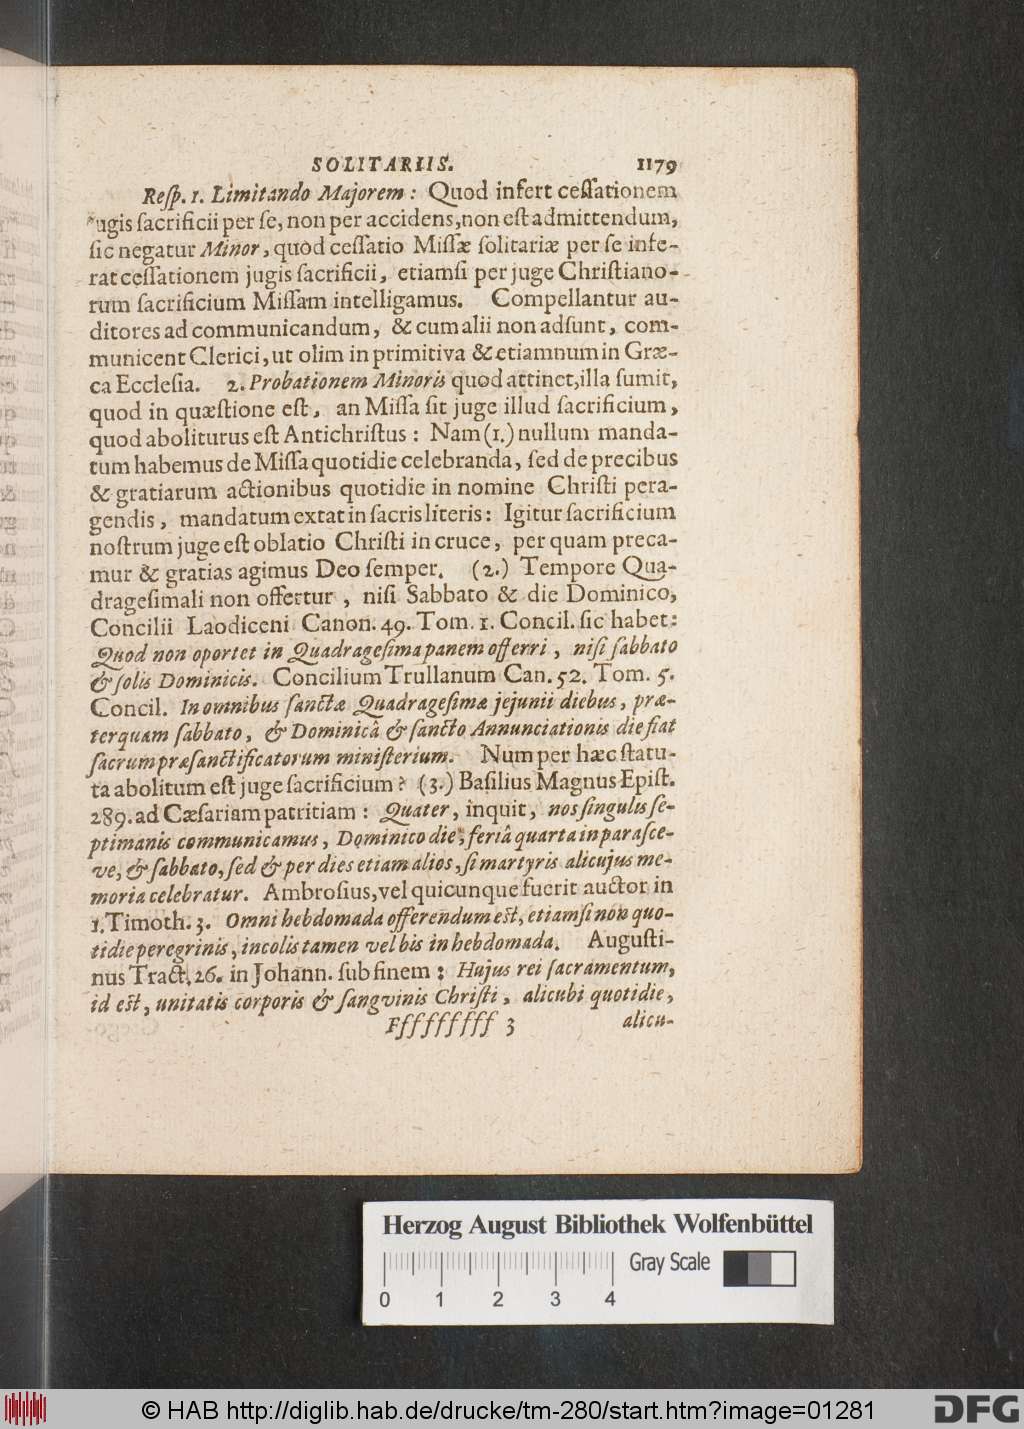 SOLITARIIS. 1179
Resp. 1. Limitando Majorem: Quod infert cessationem
jugis sacrificii per se, non per accidens, non est admittendum,
sic negatur Minor, quòd cessatio Missæ solitariæ per se infe-
rat cessationem jugis sacrificii, etiamsi per juge Christiano-
rum sacrificium Missam intelligamus. Compellantur au-
ditores ad communicandum, & cum alii non adsunt, com-
municent Clerici, ut olim in primitiva & etiamnum in Græ-
ca Ecclesia. 2. Probationem Minoris quod attinet, illa sumit,
quod in quæstione est, an Missa sit juge illud sacrificium,
quod aboliturus est Antichristus: Nam (1.) nullum manda-
tum habemus de Missa quotidie celebranda, sed de precibus
& gratiarum actionibus quotidie in nomine Christi pera-
gendis, mandatum extat in sacris literis: Igitur sacrificium
nostrum juge est oblatio Christi in cruce, per quam preca-
mur & gratias agimus Deo semper. (2.) Tempore Qua-
dragesimali non offertur, nisi Sabbato & die Dominico,
Concilii Laodiceni Canon. 49. Tom. 1. Concil. sic habet:
Quod non oportet in Quadragesima panem offerri, nisi sabbato
& solis Dominicis. Concilium Trullanum Can. 52. Tom. 5.
Concil. In omnibus sanctæ Quadragesimæ jejunii diebus, præ-
terquam sabbato, & Dominicâ & sancto Annunciationis die fiat
sacrum præsanctificatorum ministerium. Num per hæc statu-
ta abolitum est juge sacrificium? (3.) Basilius Magnus Epist.
289. ad Cæsariam patritiam: Quater, inquit, nos singulis se-
ptimanis communicamus, Dominico die, feriâ quarta in parasce-
ve, & sabbato, sed & per dies etiam alios, si martyris alicujus me-
moria celebratur. Ambrosius, vel quicunque fuerit auctor in
1. Timoth. 3. Omni hebdomada offerendum est, etiamsi non quo-
tidie peregrinis, incolis tamen vel bis in hebdomada. Augusti-
nus Tract. 26. in Johann. sub finem: Hujus rei sacramentum,
id est, unitatis corporis & sangvinis Christi, alicubi quotidie,
Fffffffff 3 alicu-
Herzog August Bibliothek Wolfenbüttel
Gray Scale
0 1 2 3 4
© HAB http://diglib.hab.de/drucke/tm-280/start.htm?image=01281
DFG